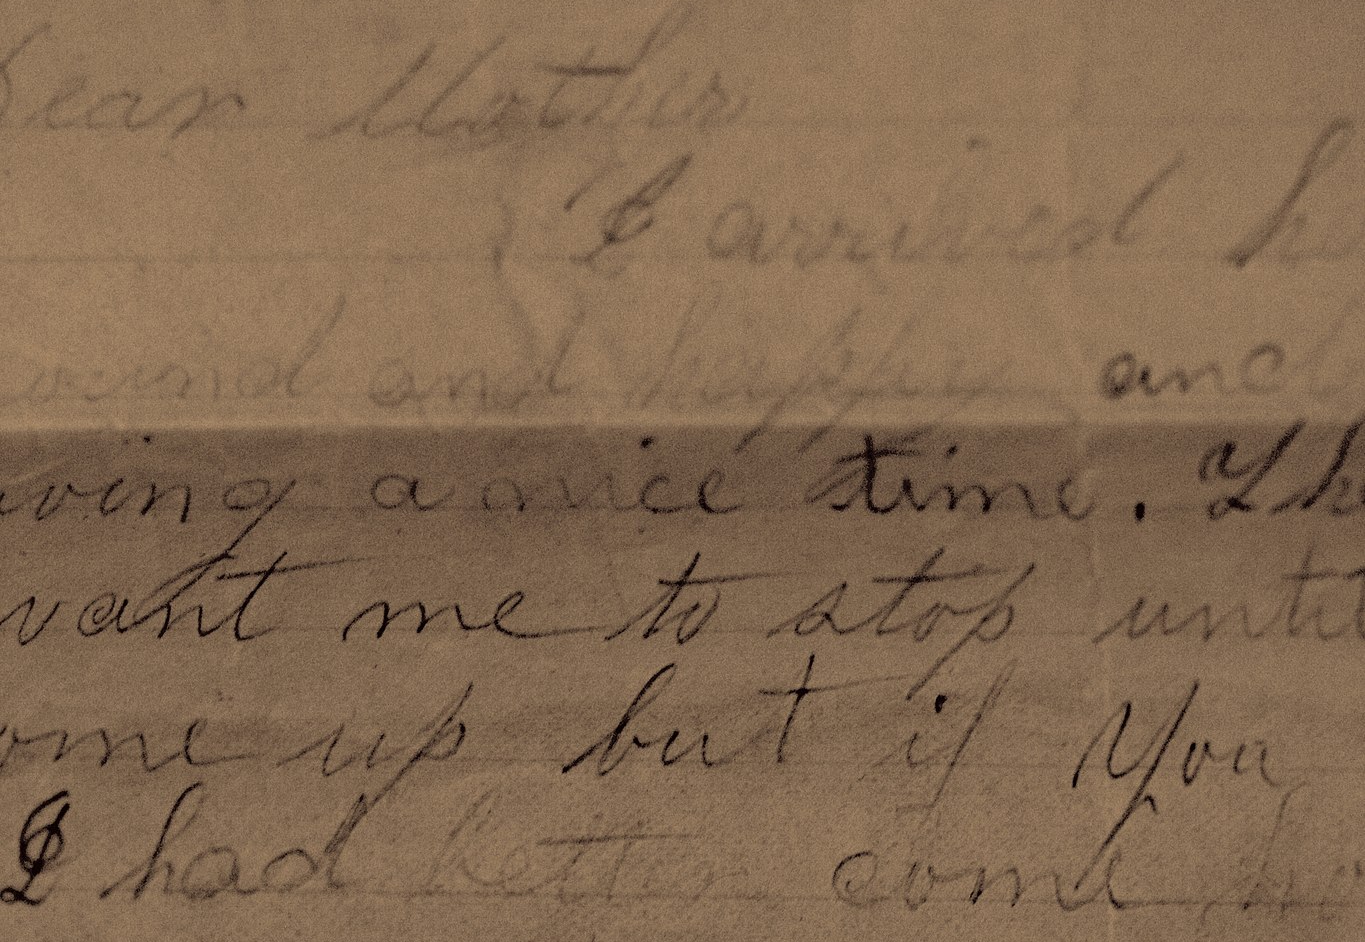 Dear Mother
I arrived h
ound and happy and
aving a nice time. The
want me to stop until
ome up but if You
I had better come ho